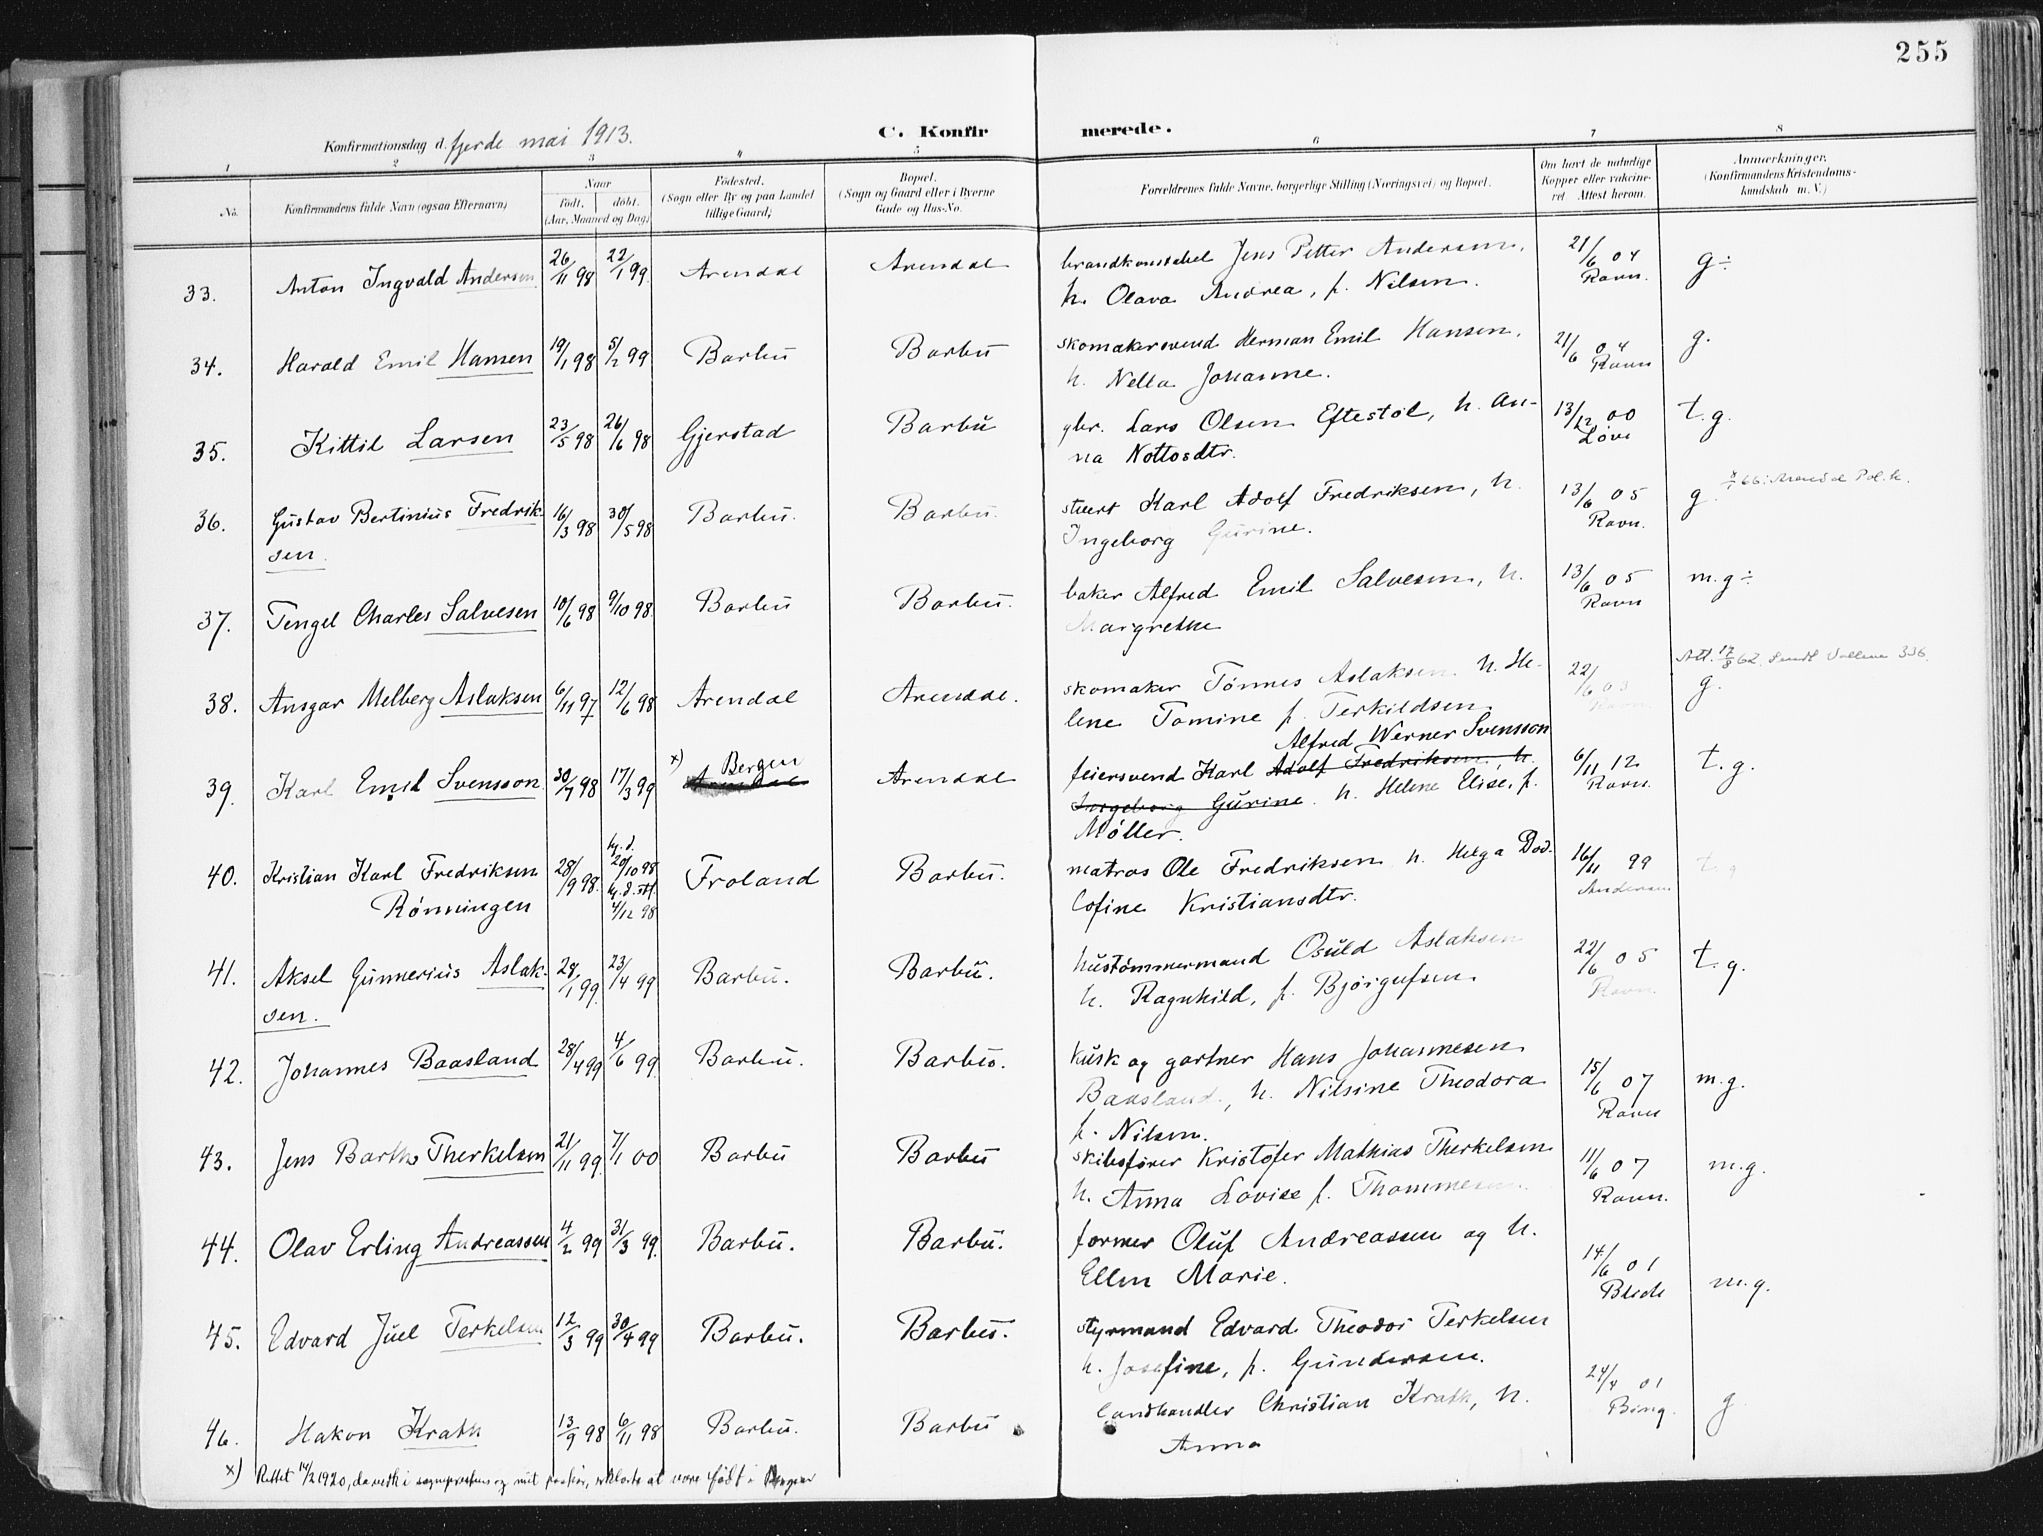 255
Konfirmationsdag d. fjerde mai 1913.
C. Konfirmerede.
1 2 3 4 5 6 7 8
No.
Konfirmandens fulde Navn (ogsaa Efternavn)
Naar
født. døbt.
(Aar, Maaned og Dag)
Fødested.
(Sogn eller By og paa Landet
tillige Gaard)
Bopæl.
(Sogn og Gaard eller i Byerne
Gade og Hus-No.
Forældrenes fulde Navne, borgerlige Stilling (Næringsvei) og Bopæl.
Om havt de naturlige
Kopper eller vakcine-
ret Attest herom.
Anmærkninger.
(Konfirmandens Kristendoms-
kundskab m. V.)
33. Anton Ingvald Andersen 26/11 98 22/1 99. Arendal Arendal brandkonstabel Jens Petter Andersen, 21/6 04 g÷
h. Olava Andrea, f. Nilsen. Ravn.
34. Harald Emil Hansen 19/1 98 5/2 99 Barbu Barbu skomakersvend Herman Emil Hansen, 21/6 04 g.
h. Nella Johanne. Ravn
35. Kittil Larsen 23/5 98 26/6 98 Gjerstad Barbu gbr. Lars Olsen Eftestøl, h. An- 13/12 00 t.g.
na Nottosdtr. Løvi
36. Gustav Bertinius Fredrik- 16/3 98 30/5 98 Barbu. Barbu. stuert Karl Adolf Fredriksen, h. 13/6 05 g. 66: Arendal Pol.k.
sen. Ingeborg Gurine. Ravn.
37. Tengel Charles Salvesen 10/6 98 9/10 98. Barbu Barbu. baker Alfred Emil Salvesen, h. 13/6 05 m.g÷
Margrethe Ravn
38. Ansgar Melberg Aslaksen 6/11 97 12/6 98 Arendal Arendal. skomaker Tønnes Aslaksen h. He- 22/6 03 g.
Att. 17/8 62.
lene Tomine f. Terkildsen.
Alfred Werner Svensson
39. Karl Emil Svensson 30/7 98 17/3 99 x) Bergen Arendal feiersvend Karl Adolf Fredriksen, h. 6/11 12 t.g.
Ingeborg Gurine. h. Helene Elise, f. Ravn.
Møller.
40. Kristian Karl Fredriksen 28/9 98. hj.d. 20/10 98 Froland Barbu. matros Ole Fredriksen h. Helga 16/11 99 t.g
Rønningen hj.d. stf. 4/12 98 Kristiansdtr. Andersen
41. Aksel Gunnerius Aslak- 28/1 99 23/4 99 Barbu. Barbu. hustømmermand Osuld Aslaksen 22/6 05 t.g.
sen. h. Ragnhild, f. Bjørgufsen. Ravn.
42. Johannes Baasland 28/4 99 4/6 99. Barbu. Barbu. kusk og gartner Hans Johannesen 15/6 07 m.g.
Baasland, h. Nilsine Theodora Ravn
f. Nilsen.
43. Jens Barth Therkelsen 21/11 99. 7/1 00 Barbu Barbu skibsfører Kristofer Mathias Therkelsen 11/6 07 m.g.
h. Anna Lovise f. Thommesen Ravn.
44. Olav Erling Andreassen 4/2 99 31/3 99. Barbu. Barbu. former Oluf Andreassen og h. 14/6 01 m.g.
Ellen Marie.
45. Edvard Juel Terkelsen 12/3 99 30/4 99 Barbu. Barbu. styrmand Edvard Theodor Terkelsen
h. Josefine, f. Gundersen.
46. Hakon Krath 13/9 98 6/11 98 Barbu. Barbu landhandler Christian Krath, h. 24/4 01 g
Anna
x) Rettet 14/2 1920, da vedk. i sogneprestens og mit påhør, erklærte at være født i Bergen